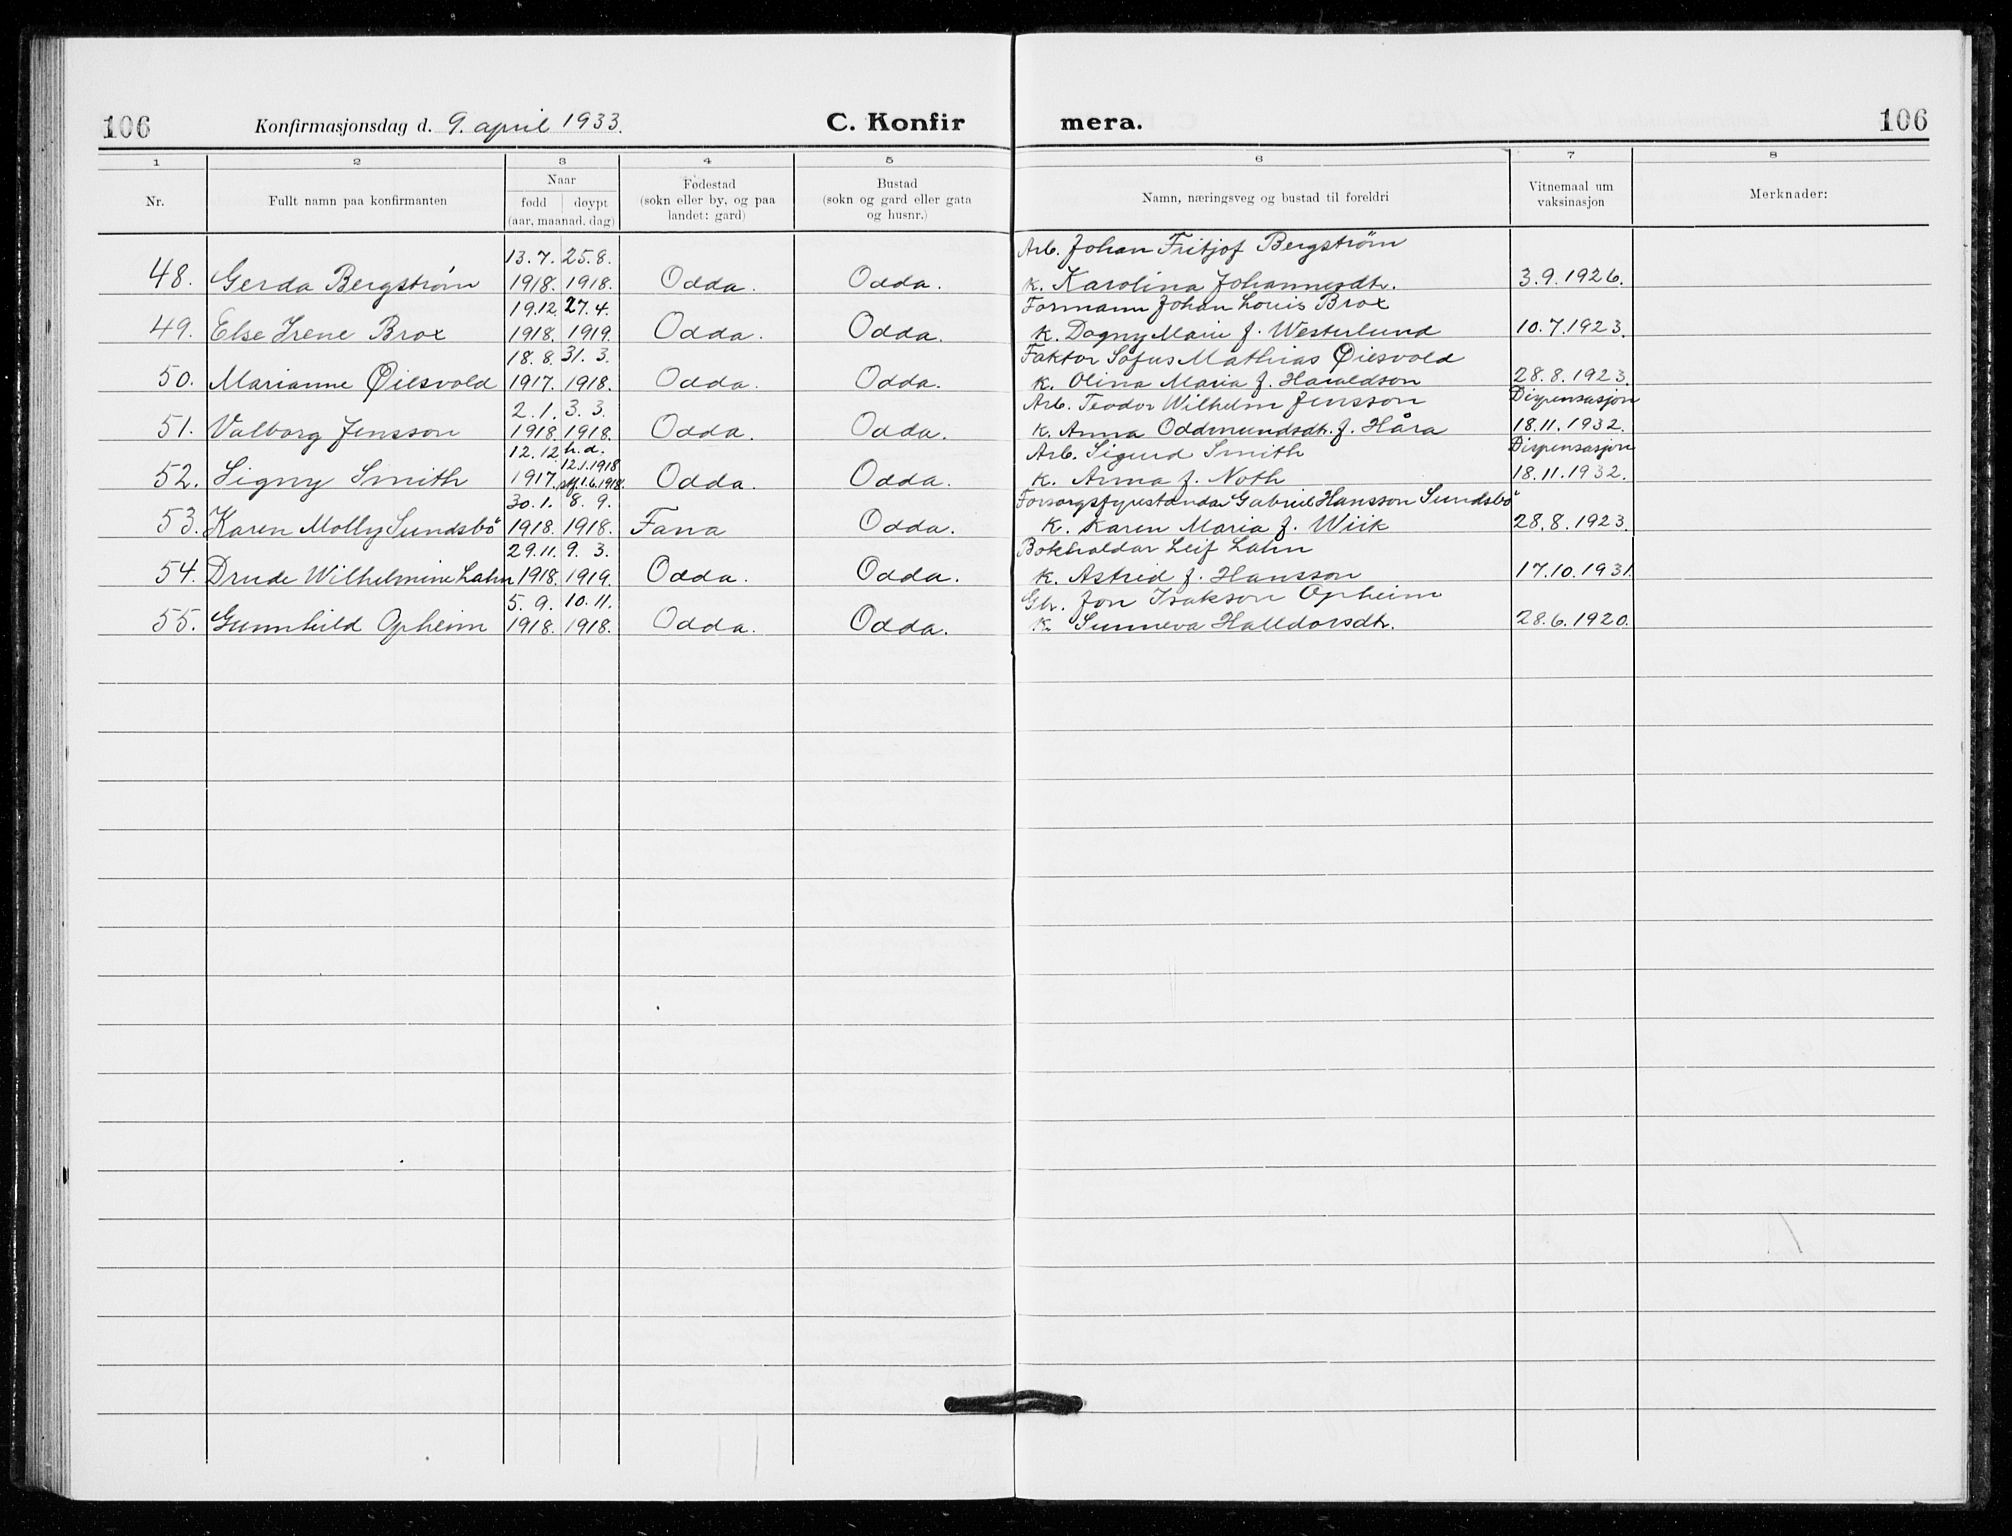 106 Konfirmasjonsdag d. 9. april 1933. C. Konfir mera. 106
1 2 3 4 5 6 7 8
Nr. Fullt namn paa konfirmanten Naar født døypt (aar, maanad, dag) Fødestad (sokn eller by, og paa landet: gard) Bustad (sokn og gard eller gata og husnr.) Namn, næringsveg og bustad til foreldri Vitnemaal um vaksinasjon Merknader:
13.7. 25.8. Arb. Johan Fritjof Bergström
48. Gerda Bergström 1918. 1918. Odda. Odda. k. Karolina Johannesdtr. 3.9.1926.
19.12. 27.4. Formann Johan Louis Brox
49. Else Irene Brox 1918. 1919. Odda. Odda. k. Dagny Marie f. Westerlund 10.7.1923.
18.8. 31.3. Faktor Sofus Mathias Øiesvold
50. Marianne Øiesvold 1917. 1918. Odda. Odda. k. Olina Maria f. Haraldson 28.8.1923.
2.1. 3.3. Arb. Teodor Wilhelm Jensson Dispensasjon
51. Valborg Jensson 1918. 1918. Odda. Odda. k. Anna Oddmundsdtr. f. Håra 18.11.1932.
12.12. h.d. 12.1.1918 Arb. Sigurd Smith Dispensasjon
52. Signy Smith 1917. stf. 1.6.1918. Odda. Odda. k. Anna f. Noth 18.11.1932.
30.1. 8.9. Forsorgsfyrestandar Gabriel Hansson Sundsbö
53. Karen Molly Sundsbö 1918. 1918. Fana Odda. k. Karen Maria f. Wiik 28.8.1923.
29.11. 9.3. Bokhaldar Leif Lahn
54. Drude Wilhelmine Lahn 1918. 1919. Odda. Odda. k. Astrid f. Hansson 17.10.1931.
5.9. 10.11. Gbr. Jon Isakson Opheim
55. Gunnhild Opheim 1918. 1918. Odda. Odda. k. Sunneva Halldorsdtr. 28.6.1920.